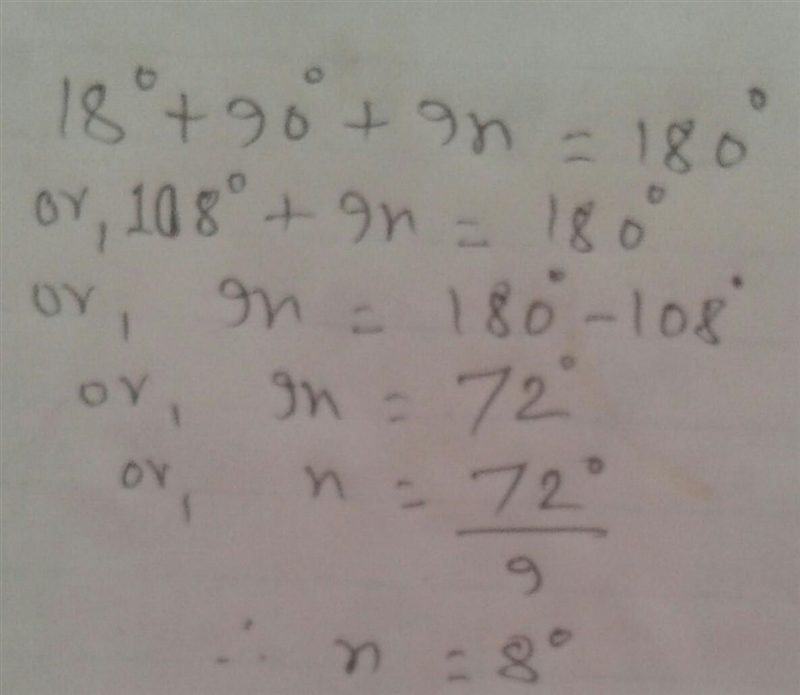 18° + 90° + 9n = 180°
or, 108° + 9n = 180°
or, 9n = 180° - 108°
or, 9n = 72°
or, n = 72° / 9
∴ n = 8°